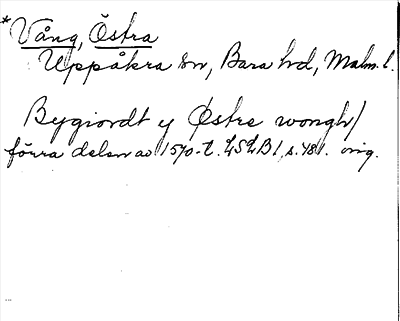 *Vång, Östra
Uppåkra sn, Bara hd, Malm. l.
Bygiordt y Østre wongh/
förra delen av 1570-t. LSLB1, s. 481. orig.